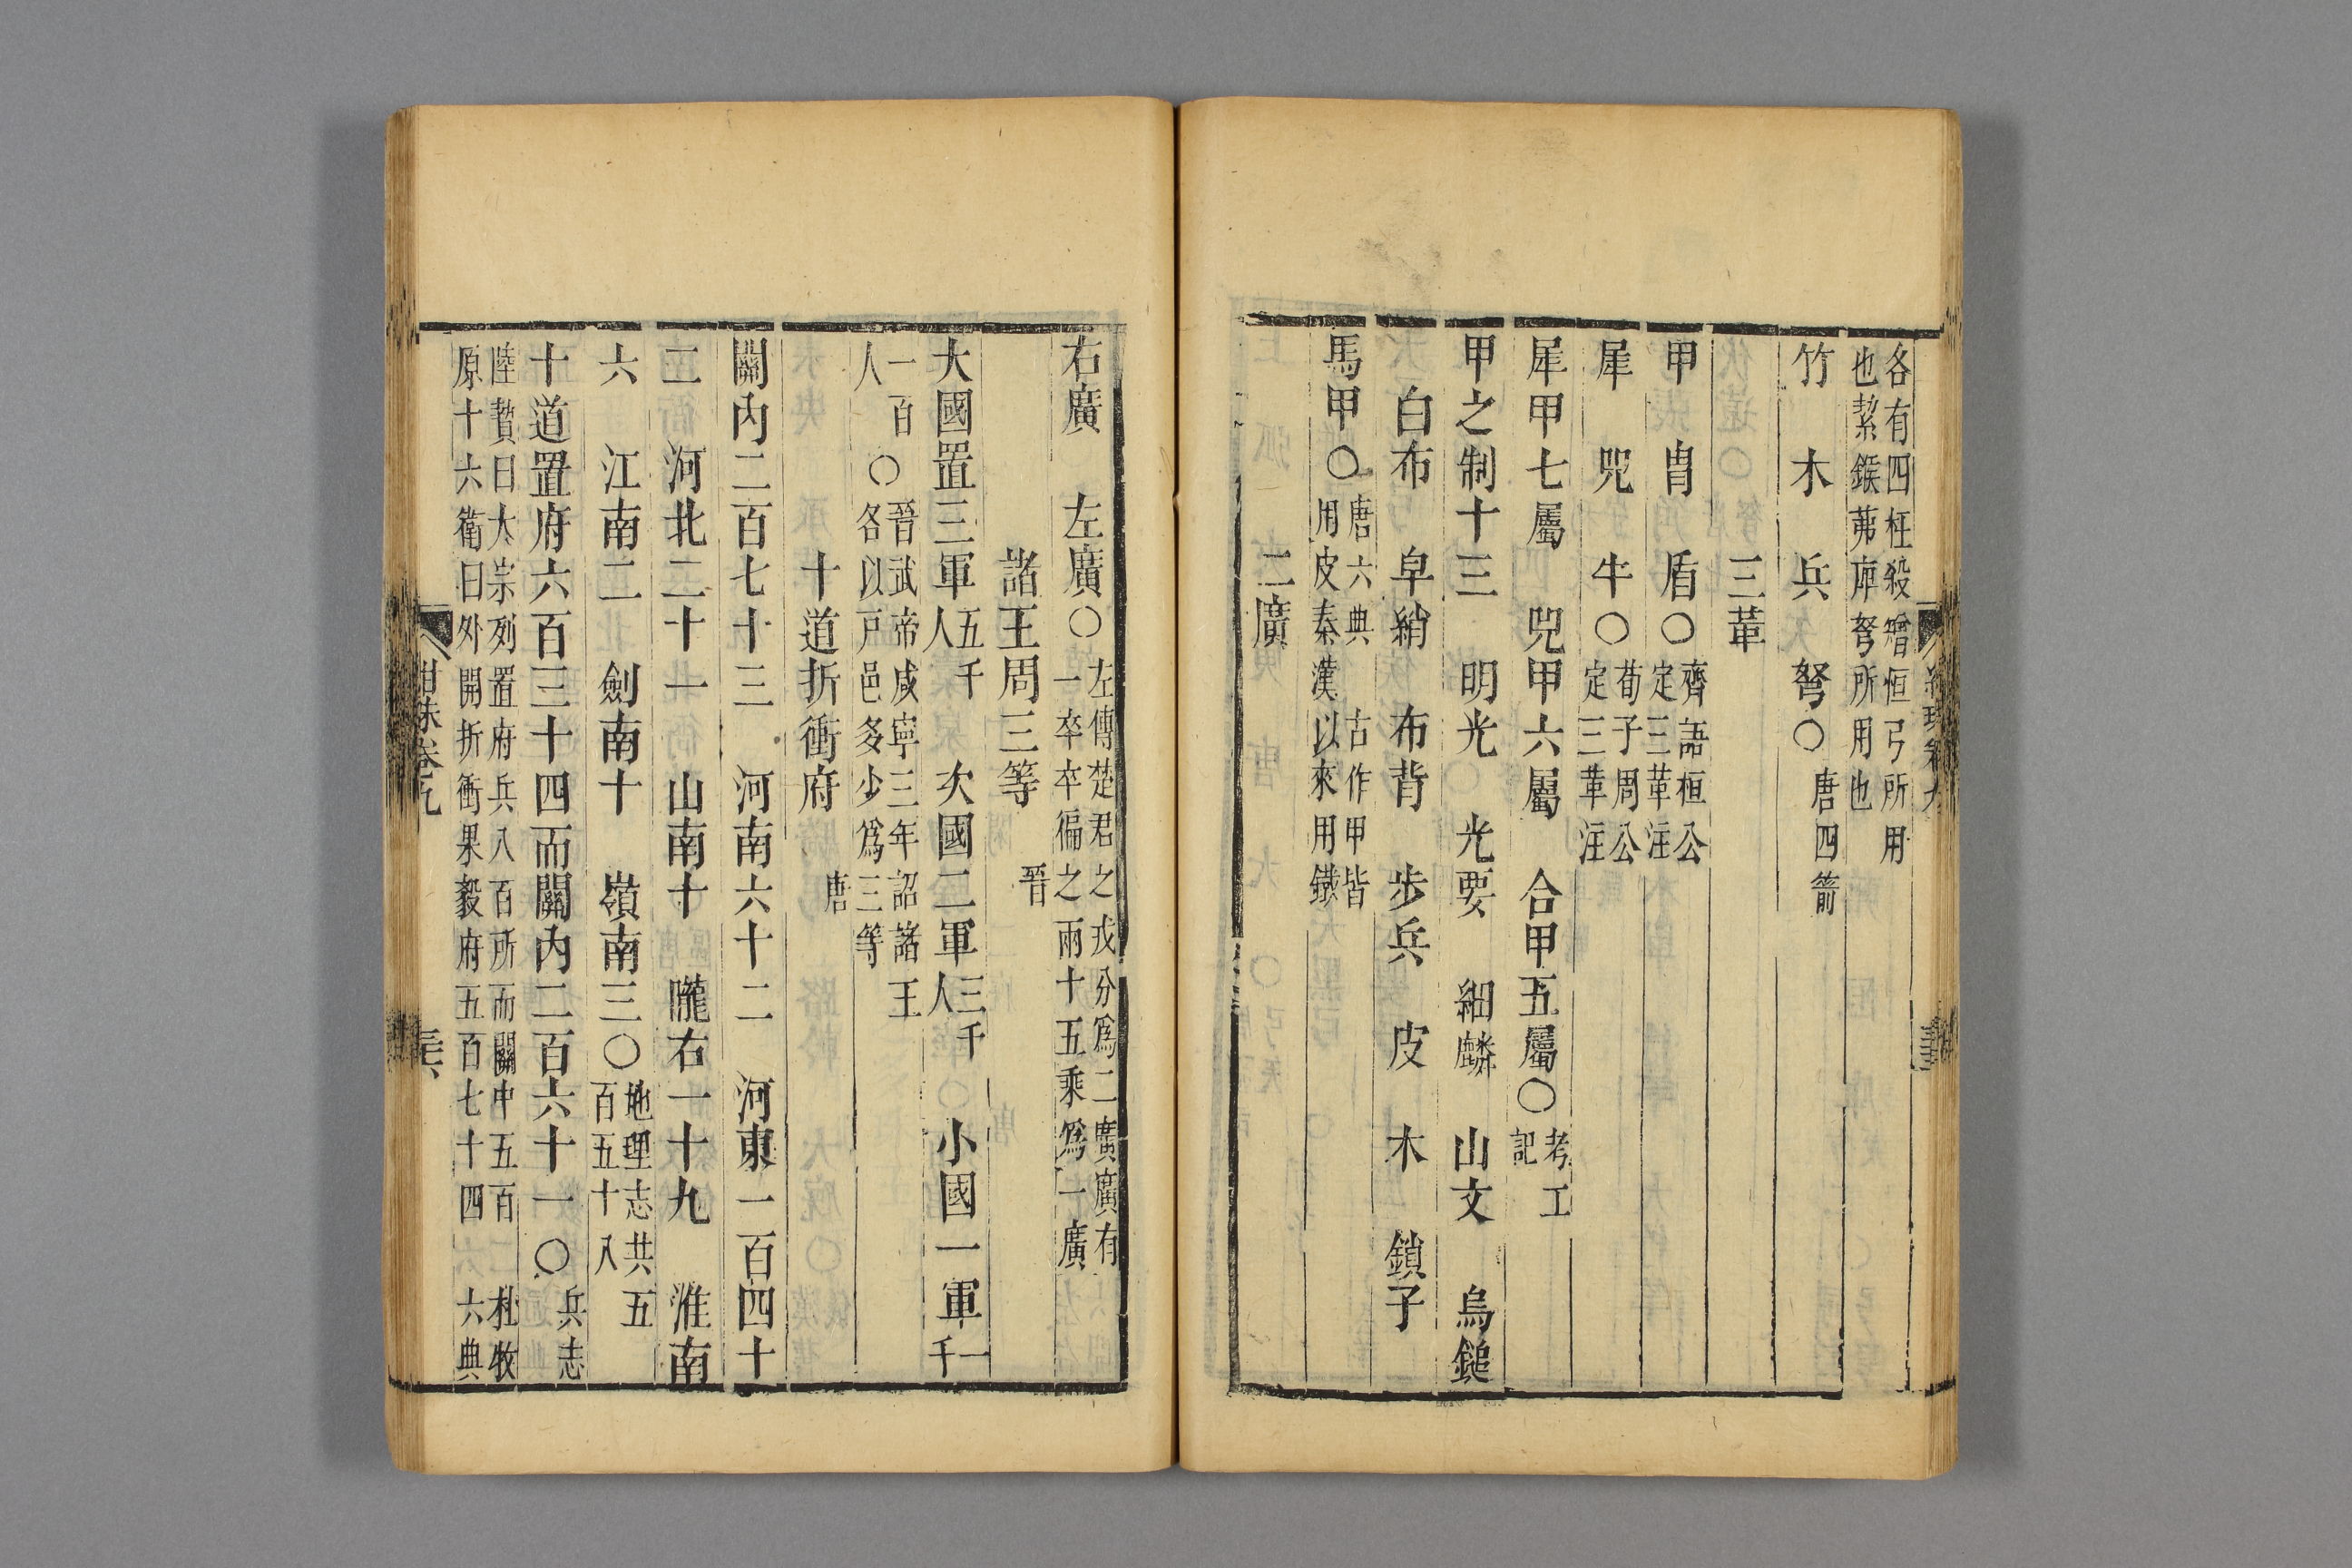 各有四枉殺矰恒弓所用
也絜鍭茀庳弩所用也
竹　木　兵　弩○唐四箭
三革
甲　冑　盾○齊語桓公定三革注
犀　兕　牛○荀子周公定三革注
犀甲七屬　兕甲六屬　合甲五屬○考工記
甲之制十三　明光　光要　細鱗　山文　烏鎚
白布　皁絹　布背　步兵　皮　木　鎖子
馬甲○唐六典　古作甲皆用皮秦漢以來用鐵
二廣
右廣　左廣○左傳楚君之戎分爲二廣廣有一卒卒偏之兩十五乘爲一廣
諸王周三等　晉
大國置三軍五千人　次國二軍三千人　小國一軍一千
一百人○晉武帝咸寧三年詔諸王各以戸邑多少爲三等
十道折衝府　唐
關內二百七十三　河南六十二　河東一百四十
二　河北二十一　山南十　隴右一十九　淮南
六　江南二　劍南十　嶺南三○地理志共五百五十八
十道置府六百三十四而關內二百六十一○兵志
陸贄曰太宗列置府兵八百所而關中五百　杜牧
原十六衛曰外開折衝果毅府五百七十四　六典
紺珠卷九